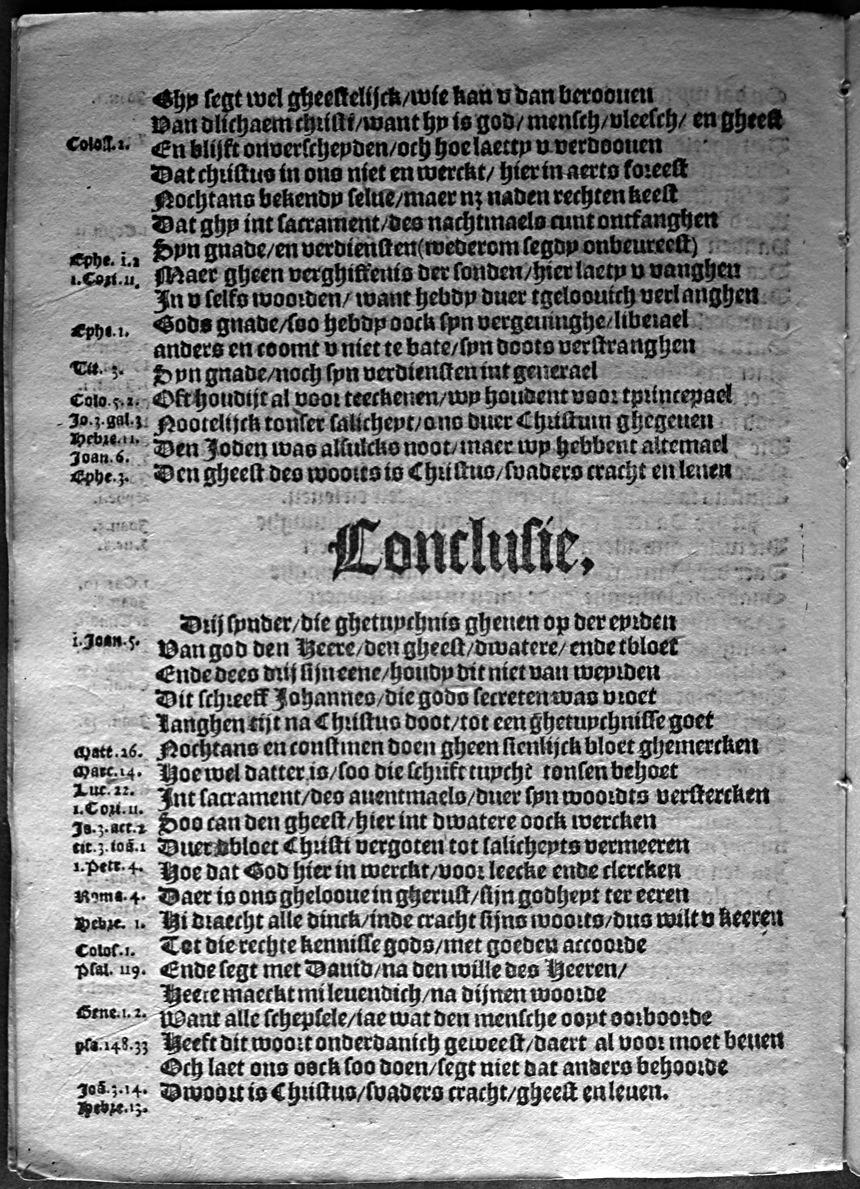 Ghy segt wel gheestelijck/wie kan v dan beroouen
Van dlichaem christi/want hy is god/mensch/vleesch/ en gheest
Coloss.2. En blijft onverscheyden/och hoe laetty v verdoouen
Dat christus in ons niet en werckt/ hier in aerts foreest
Nochtans bekendy selue/maer nz naden rechten keest
Dat ghy int sacrament/des nachtmaels cunt ontfanghen
Ephe. i.2 Syn gnade/en verdiensten(wederom segdy onbeureest)
1.Cori.11. Maer gheen verghiffenis der sonden/hier laety v vanghen
In v selfs woorden/ want hebdy duer tgeloouich verlanghen
Ephe.1. Gods gnade/soo hebdy oock syn vergeuinghe/liberael
anders en coomt v niet te bate/syn doots verstranghen
Tit. 3. Syn gnade/noch syn verdiensten int generael
Colo.5.2. Oft houdijt al voor teeckenen/wy houdent voor tprincepael
Jo.3.gal.3 Nootelijck tonser salicheyt/ons duer Christum ghegeuen
Hebre.11.
Joan.6. Den Joden was alsulcks noot/maer wy hebbent altemael
Ephe.3. Den gheest des woorts is Christus/svaders cracht en leuen
Conclusie.
Drij synder/die ghetuychnis gheuen op der eyrden
i.Joan.5. Van god den Heere/den gheest/dwatere/ ende tbloet
Ende dees drij sijn eene/houdy dit niet van weyrden
Dit schreeff Johannes/die gods secreten was vroet
Langhen tijt na Christus doot/tot een ghetuychnisse goet
Matt.26. Nochtans en constmen doen gheen sienlijck bloet ghemercken
Marc.14. Hoe wel datter is/soo die schrift tuycht tonsen behoet
Luc.22.
1.Cori.11. Int sacrament/des auentmaels/duer syn woordts verstercken
Jo.3.act.2 Soo can den gheest/hier int dwatere oock wercken
tit.3.ioā.1 Duer dbloet Christi vergoten tot salicheyts vermeeren
1.Petr.4. Hoe dat God hier in werckt/voor leecke ende clercken
Roma.4. Daer is ons ghelooue in gherust/sijn godheyt ter eeren
Hebre. 1. Hi draecht alle dinck/inde cracht sijns woorts/dus wilt v keeren
Colos.1. Tot die rechte kennisse gods/met goeden accoorde
Psal. 119. Ende segt met Dauid/na den wille des Heeren/
Heere maeckt mi leuendich/na dijnen woorde
Gene.1.2. Want alle schepsele/iae wat den mensche ooyt oorboorde
psa.148.33 Heeft dit woort onderdanich geweest/daert al voor moet beuen
Och laet ons oock soo doen/segt niet dat anders behoorde
Joā.3.14. Dwoort is Christus/svaders cracht/gheest en leuen.
Hebre.13.